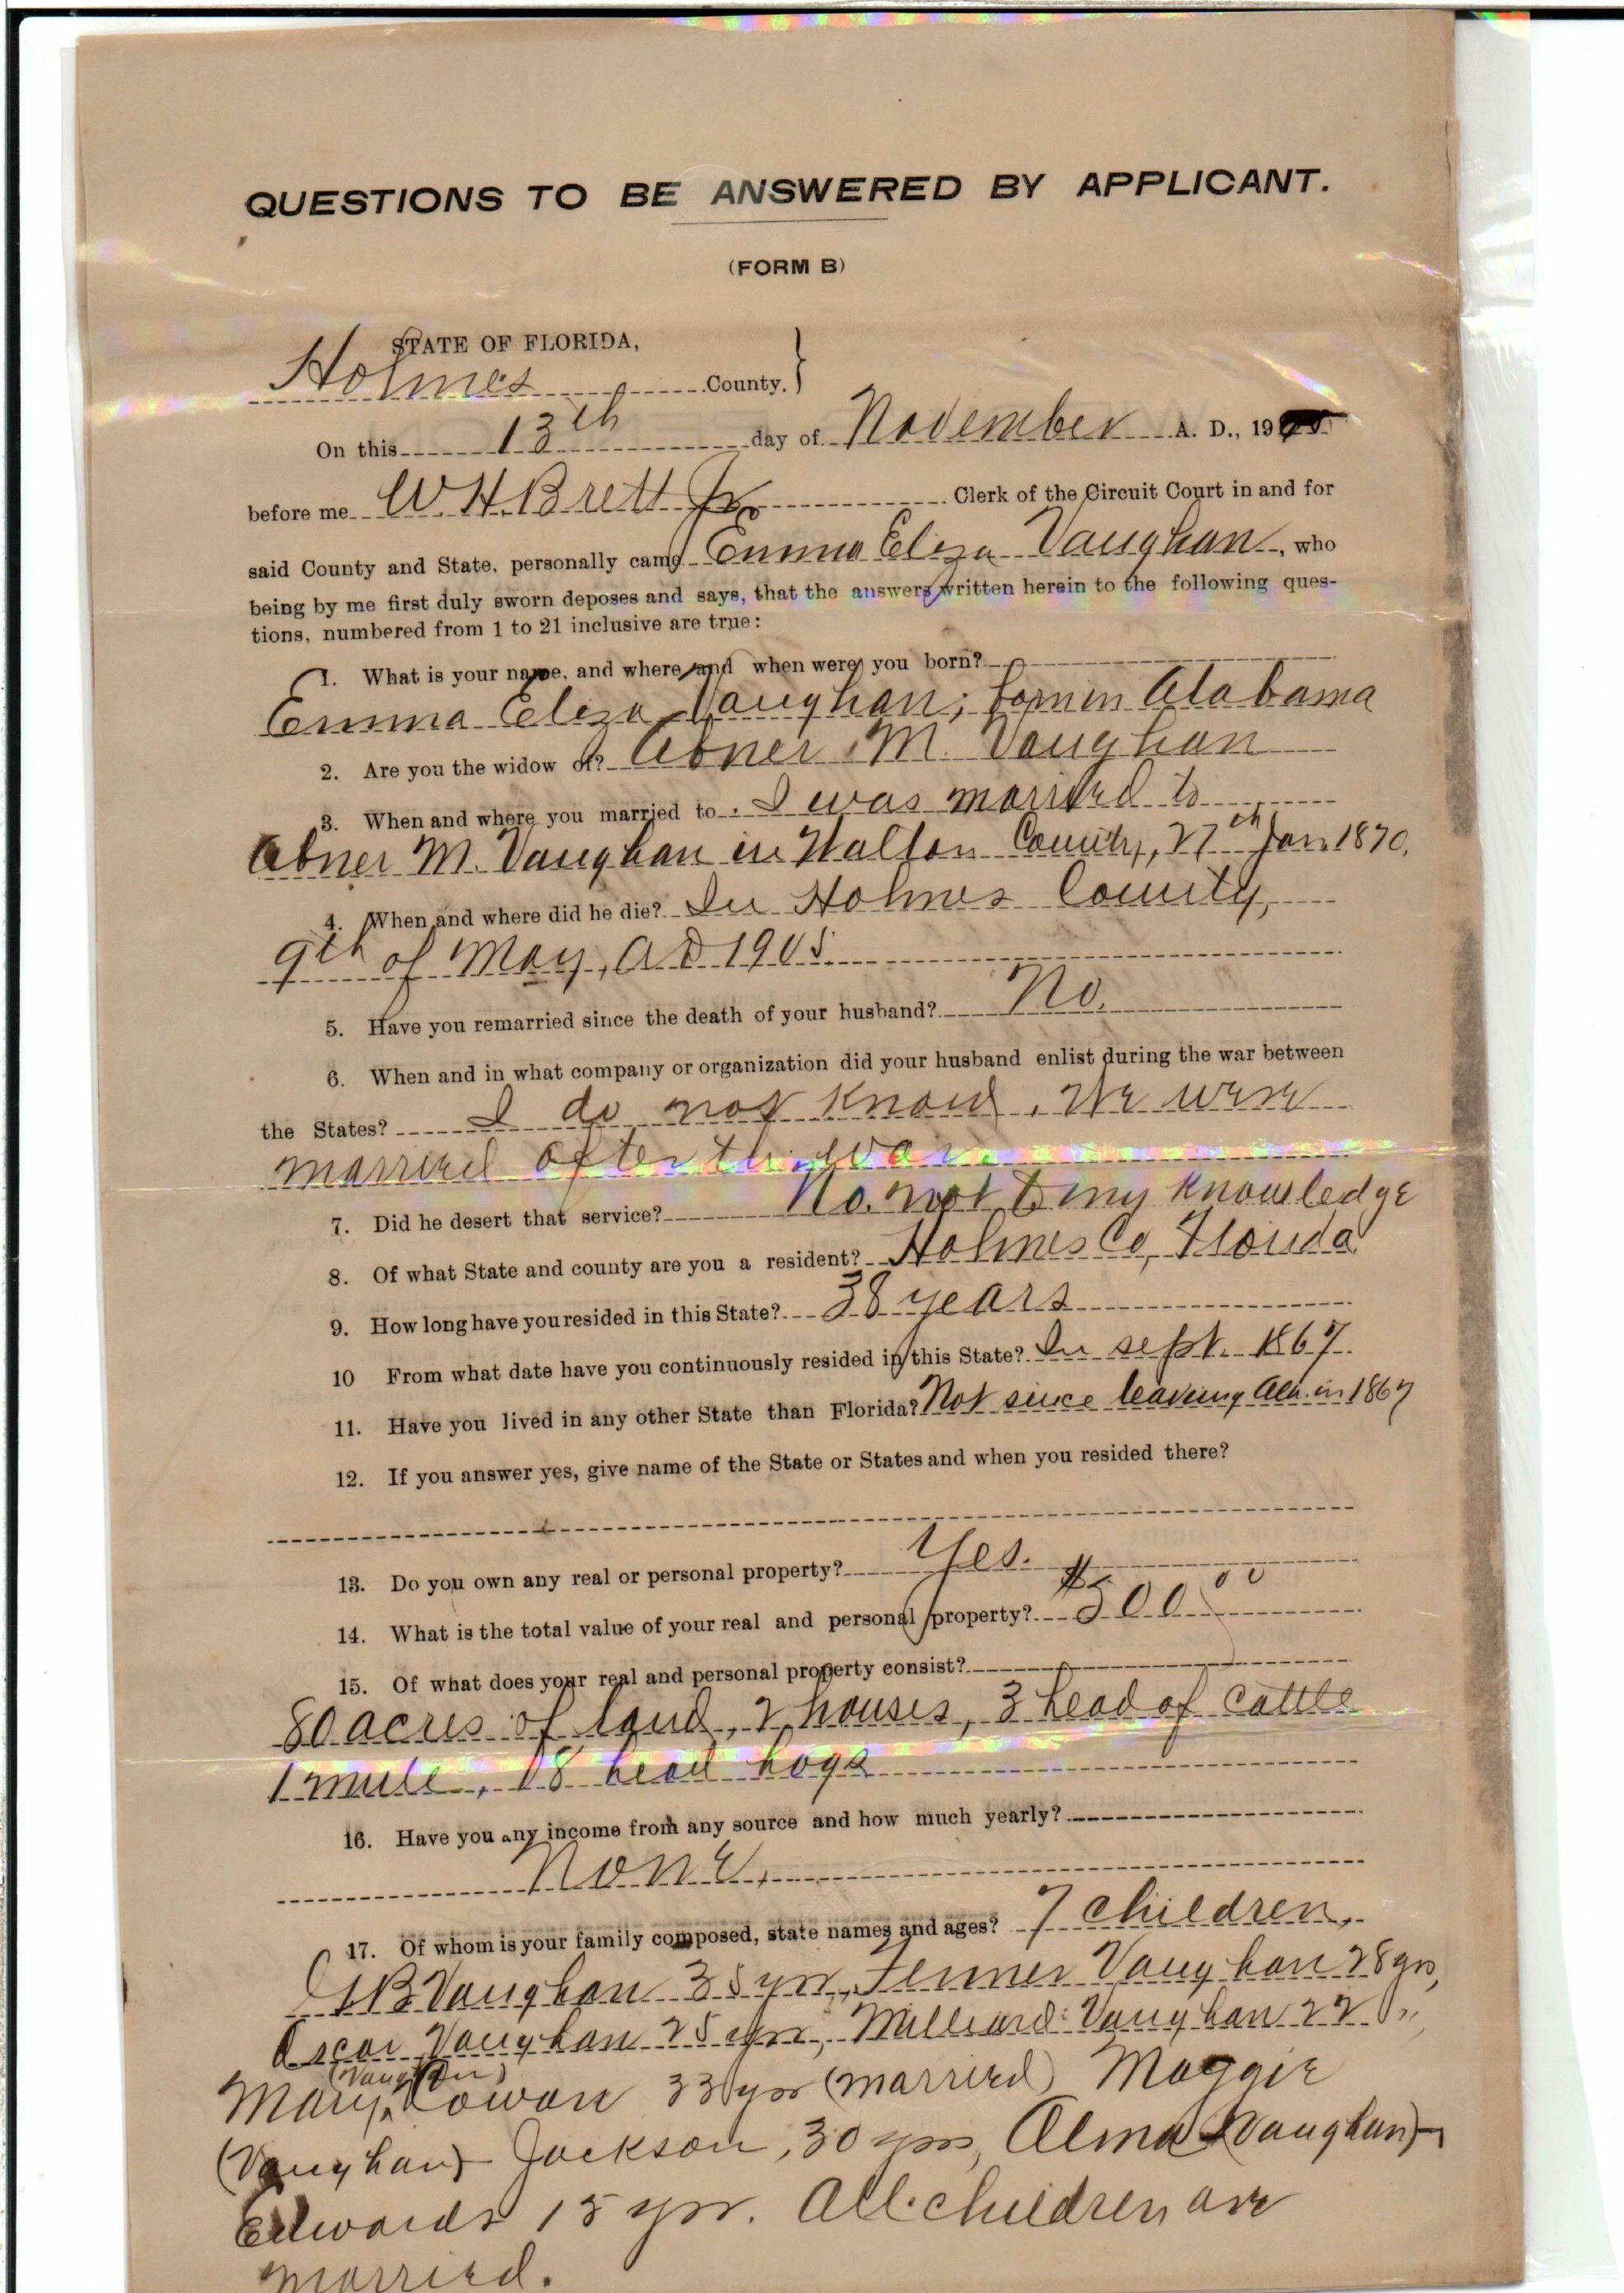 QUESTIONS TO BE ANSWERED BY APPLICANT.
(FORM B)
STATE OF FLORIDA,
Holmes County. }
On this 13th day of November A. D., 19
before me W. H. Brett Jr Clerk of the Circuit Court in and for
said County and State, personally came Emma Eliza Vaughan, who
being by me first duly sworn deposes and says, that the answers written herein to the following ques-
tions, numbered from 1 to 21 inclusive are true:
1. What is your name, and where and when were you born?
Emma Eliza Vaughan; born in Alabama
2. Are you the widow of? Abner M. Vaughan
3. When and where you married to. I was married to
Abner M. Vaughan in Walton County, 27th Jan. 1870.
4. When and where did he die? In Holmes County,
9th of May, A D 1905.
5. Have you remarried since the death of your husband? No.
6. When and in what company or organization did your husband enlist during the war between
the States? I do not know. We were
married after the war.
7. Did he desert that service? No. not to my knowledge
8. Of what State and county are you a resident? Holmes Co, Florida
9. How long have you resided in this State? 38 years
10 From what date have you continuously resided in this State? In sept. 1867.
11. Have you lived in any other State than Florida? Not since leaving Ala. in 1867
12. If you answer yes, give name of the State or States and when you resided there?
13. Do you own any real or personal property? Yes.
14. What is the total value of your real and personal property? $500 00
15. Of what does your real and personal property consist?
80 acres of land, 2 houses, 3 head of cattle
1 mule, 18 head hogs
16. Have you any income from any source and how much yearly?
None.
17. Of whom is your family composed, state names and ages? 7 children,
G B Vaughan 35 yrs, Fenner Vaughan 28 yrs,
Oscar Vaughan 25 yrs, Milliard Vaughan 22 "
(Vaughan)
Mary Cowan 33 yrs (married) Maggie
(Vaughan) Jackson, 30 yrs, Alma (Vaughan)-
Edwards 15 yrs. All children are
married.